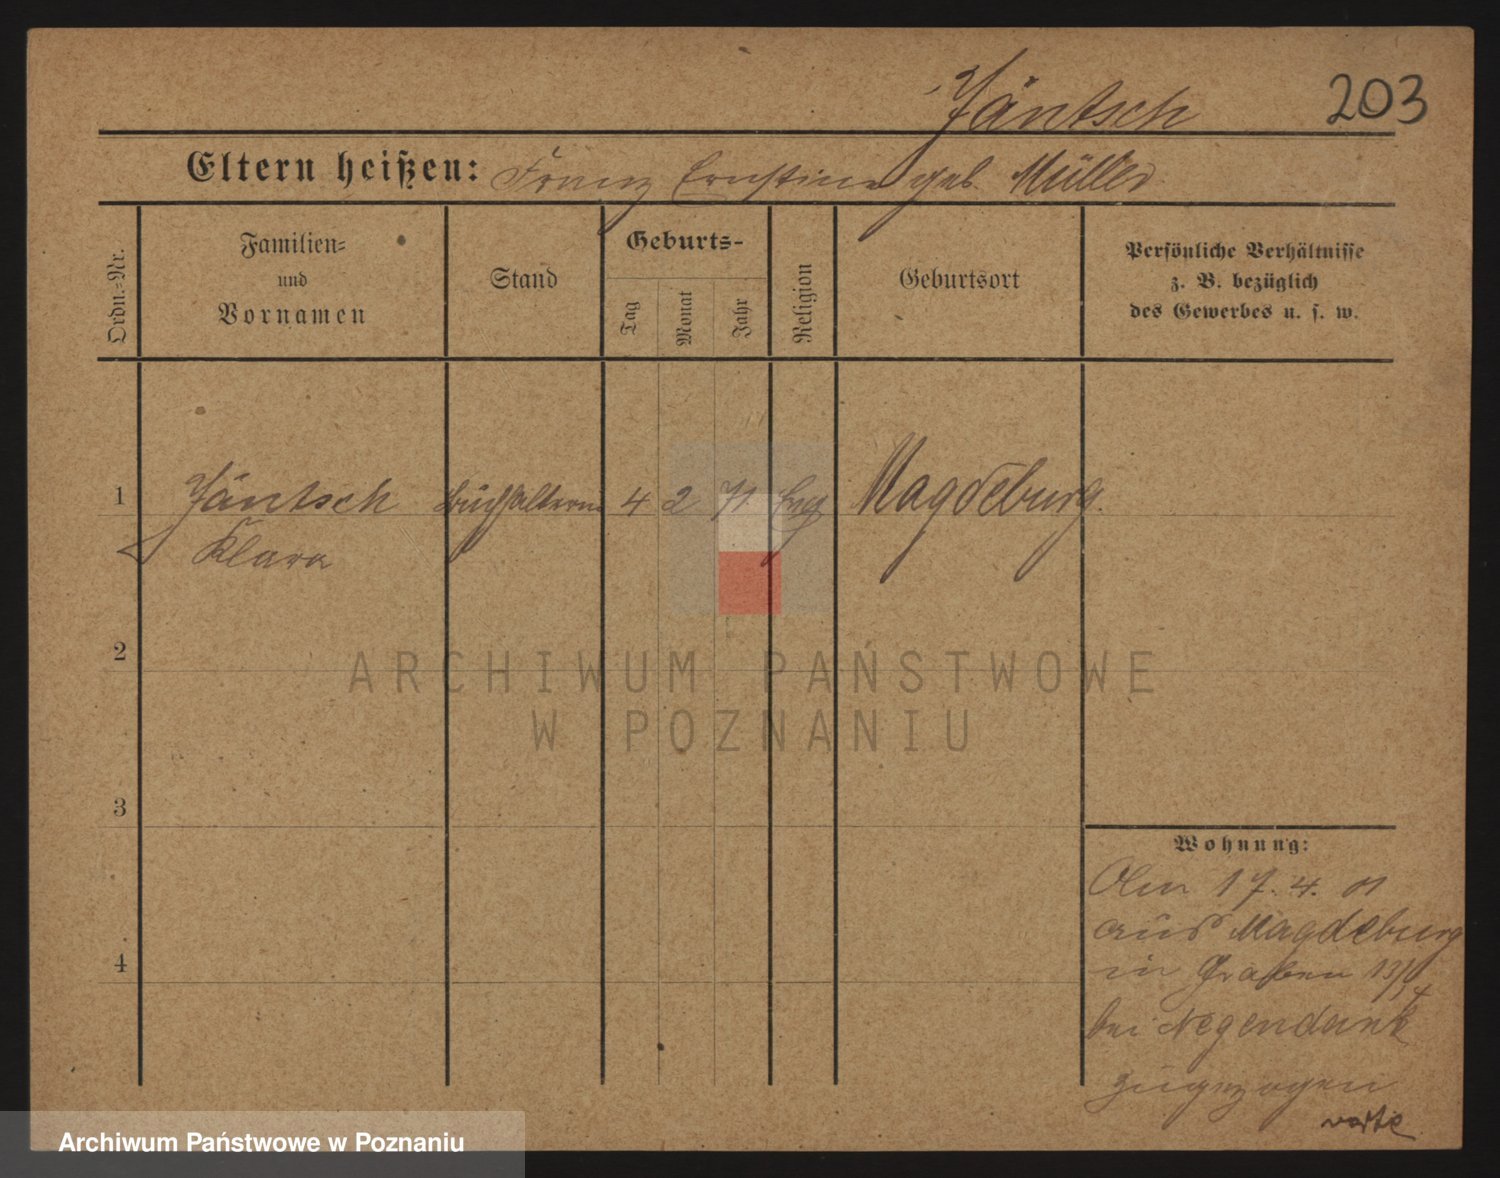 Jäntsch 203
Eltern heißen: Franz Ernstine geb. Müller
Ordn.-Nr.
Familien-
und
Vornamen
Stand
Geburts-
Tag
Monat
Jahr
Religion
Geburtsort
Persönliche Verhältnisse
z. B. bezüglich
des Gewerbes u. s. w.
1 Jäntsch Buchhalterin 4 2 71 Evg Magdeburg.
Klara
2
3
4
ARCHIWUM PAŃSTWOWE
W POZNANIU
Wohnung:
Am 17. 4. 01
aus Magdeburg
in Graben
bei Negendank
zugezogen
Archiwum Państwowe w Poznaniu